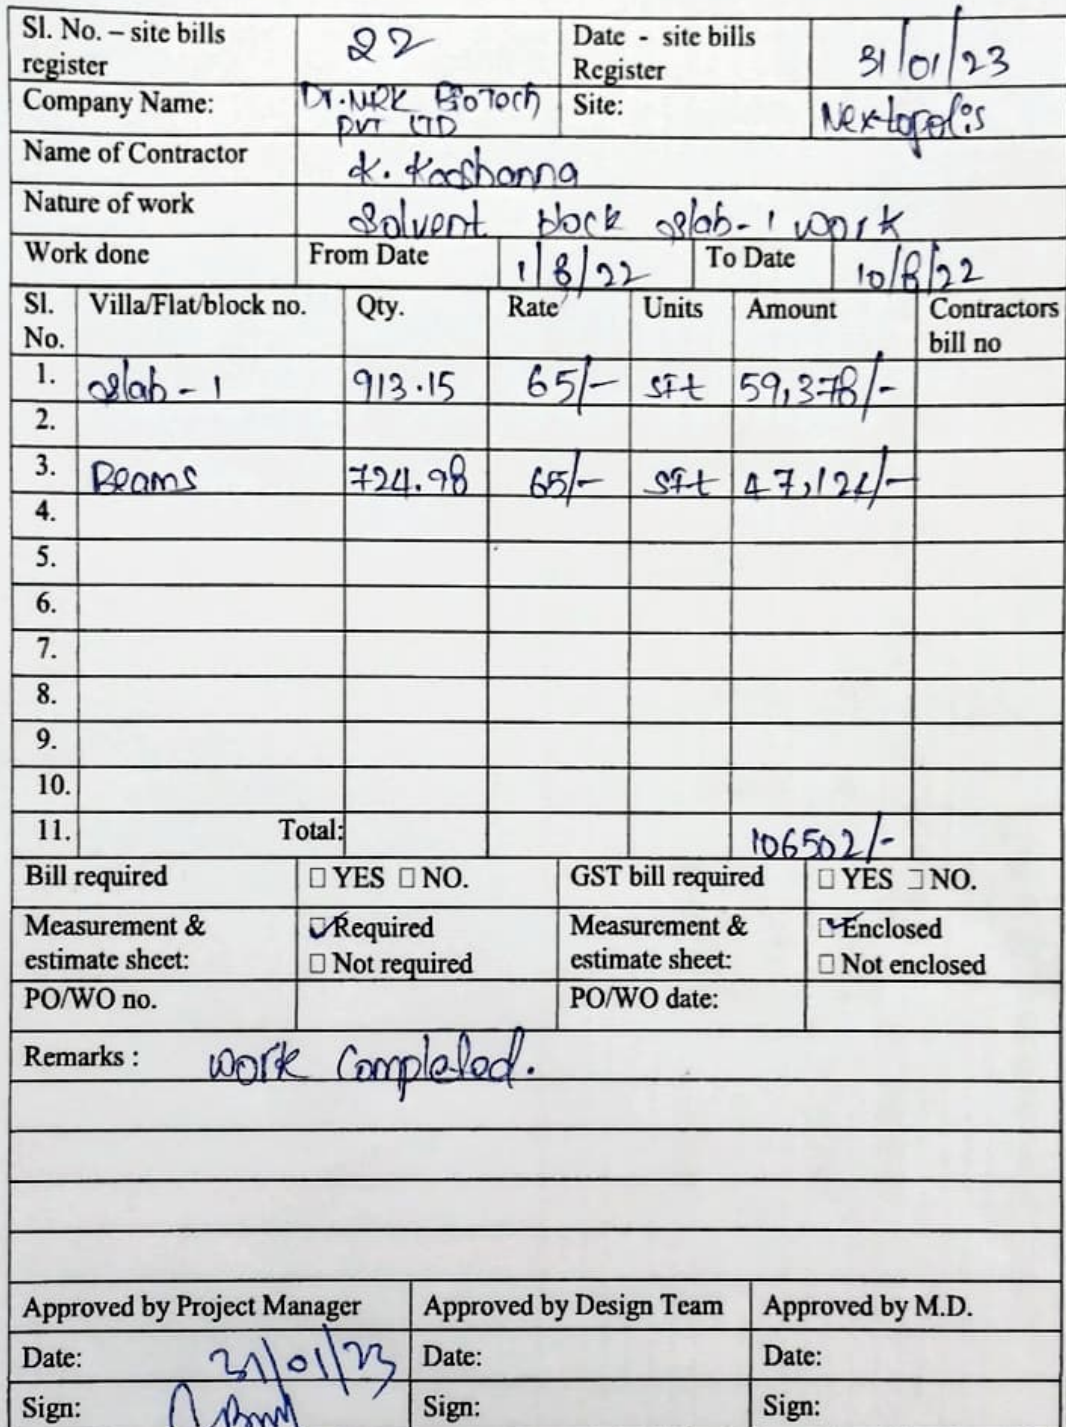 Sl. No. – site bills register 22 Date - site bills Register 31/01/23
Company Name: Dr. NRK BioTech PVT LTD Site: Nextopolis
Name of Contractor K. Kashanna
Nature of work Solvent block slab-1 work
Work done From Date 1/8/22 To Date 10/8/22
Sl. No. Villa/Flat/block no. Qty. Rate Units Amount Contractors bill no
1. slab-1 913.15 65/- sft 59,378/-
2.
3. Beams 724.98 65/- sft 47,124/-
4.
5.
6.
7.
8.
9.
10.
11. Total: 106502/-
Bill required □ YES □ NO. GST bill required □ YES □ NO.
Measurement & estimate sheet: ☑ Required □ Not required Measurement & estimate sheet: ☑ Enclosed □ Not enclosed
PO/WO no. PO/WO date:
Remarks : work completed.
Approved by Project Manager Approved by Design Team Approved by M.D.
Date: 31/01/23 Date: Date:
Sign: Sign: Sign: